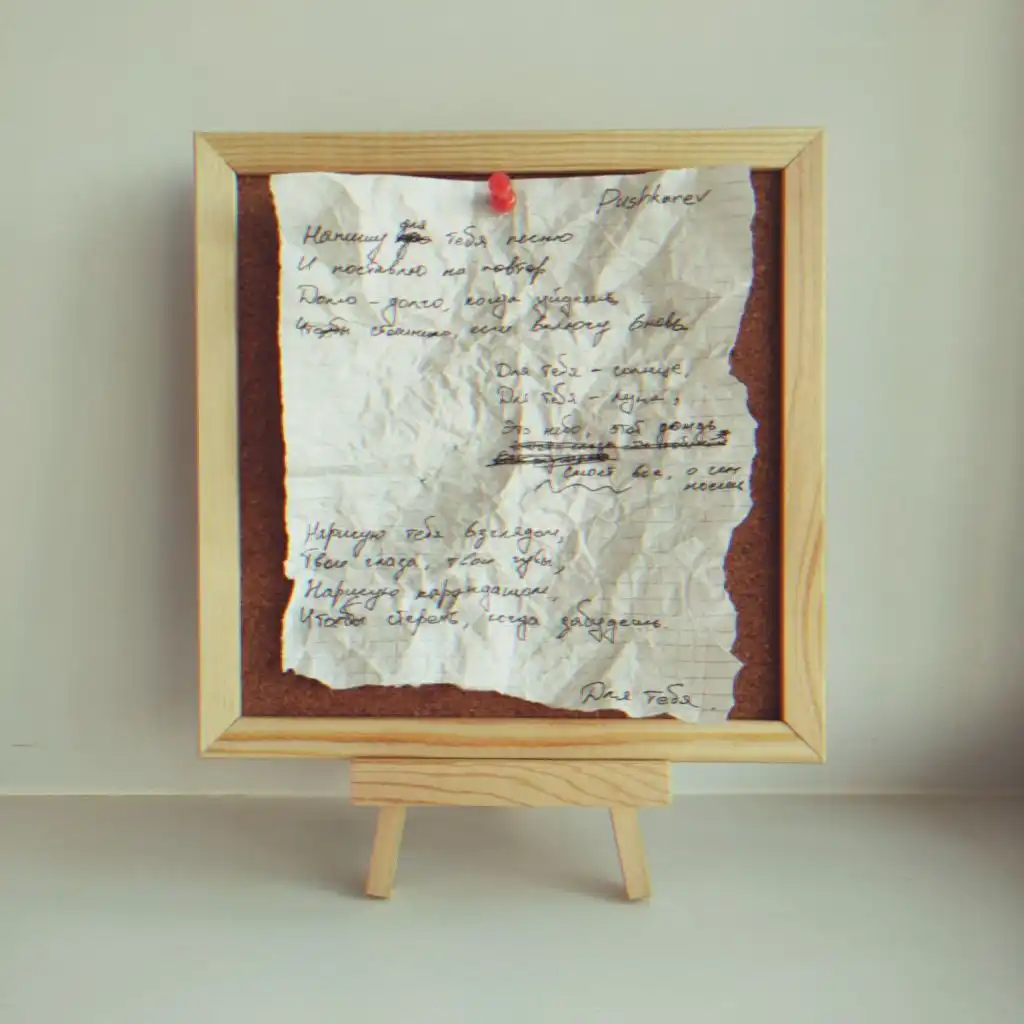 Pushkarev
Напишу для тебя песню
И поставлю на повтор
Долго - долго, когда уйдешь
Чтобы, если включу вновь
Для тебя - солнце,
Для тебя - луна,
Это небо, этот дождь
Смоет все, о чем
Нарисую тебя взглядом,
Твои глаза, твои губы,
Нарисую карандашом,
Чтобы стереть, когда забудешь.
Для тебя.